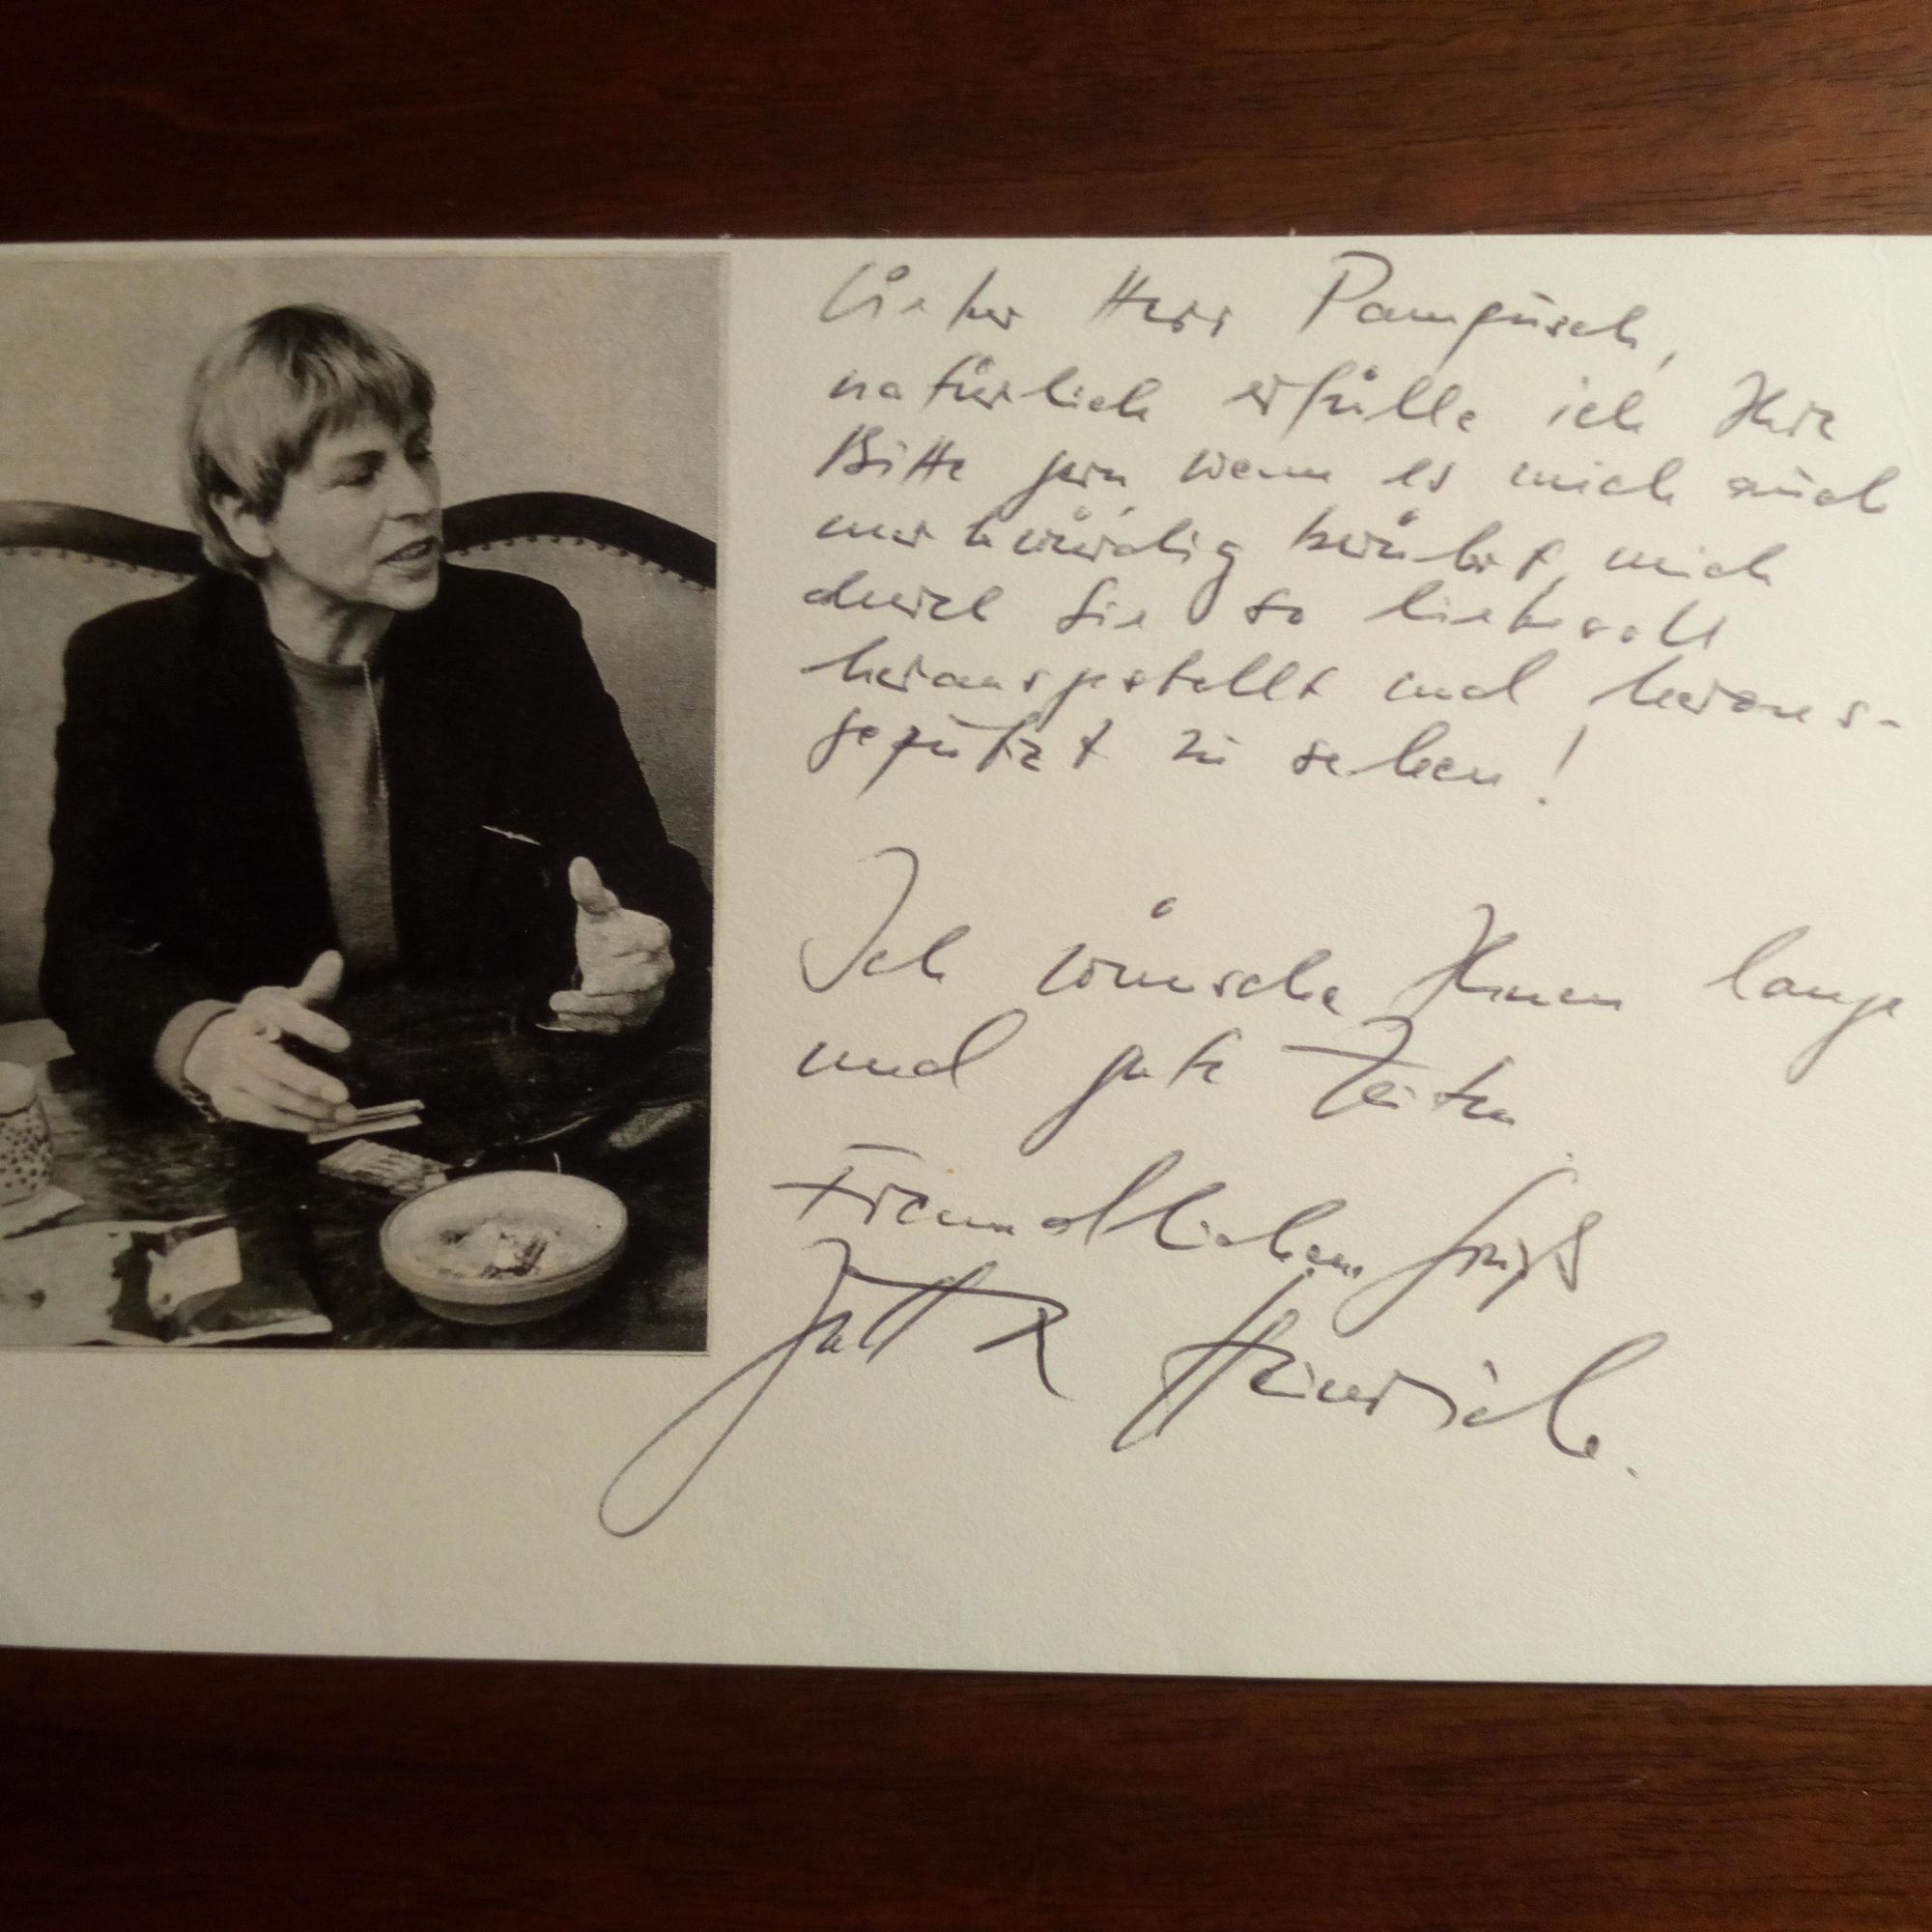 Lieber Herr Pampüsch,
natürlich erfülle ich Ihre
Bitte gern, wenn es mich auch
merkwürdig berührt, mich
durch Sie so liebevoll
herausgestellt und heraus-
geputzt zu sehen!
Ich wünsche Ihnen lange
und gute Zeiten.
Freundlichen Gruß
Jutta Heinrich.